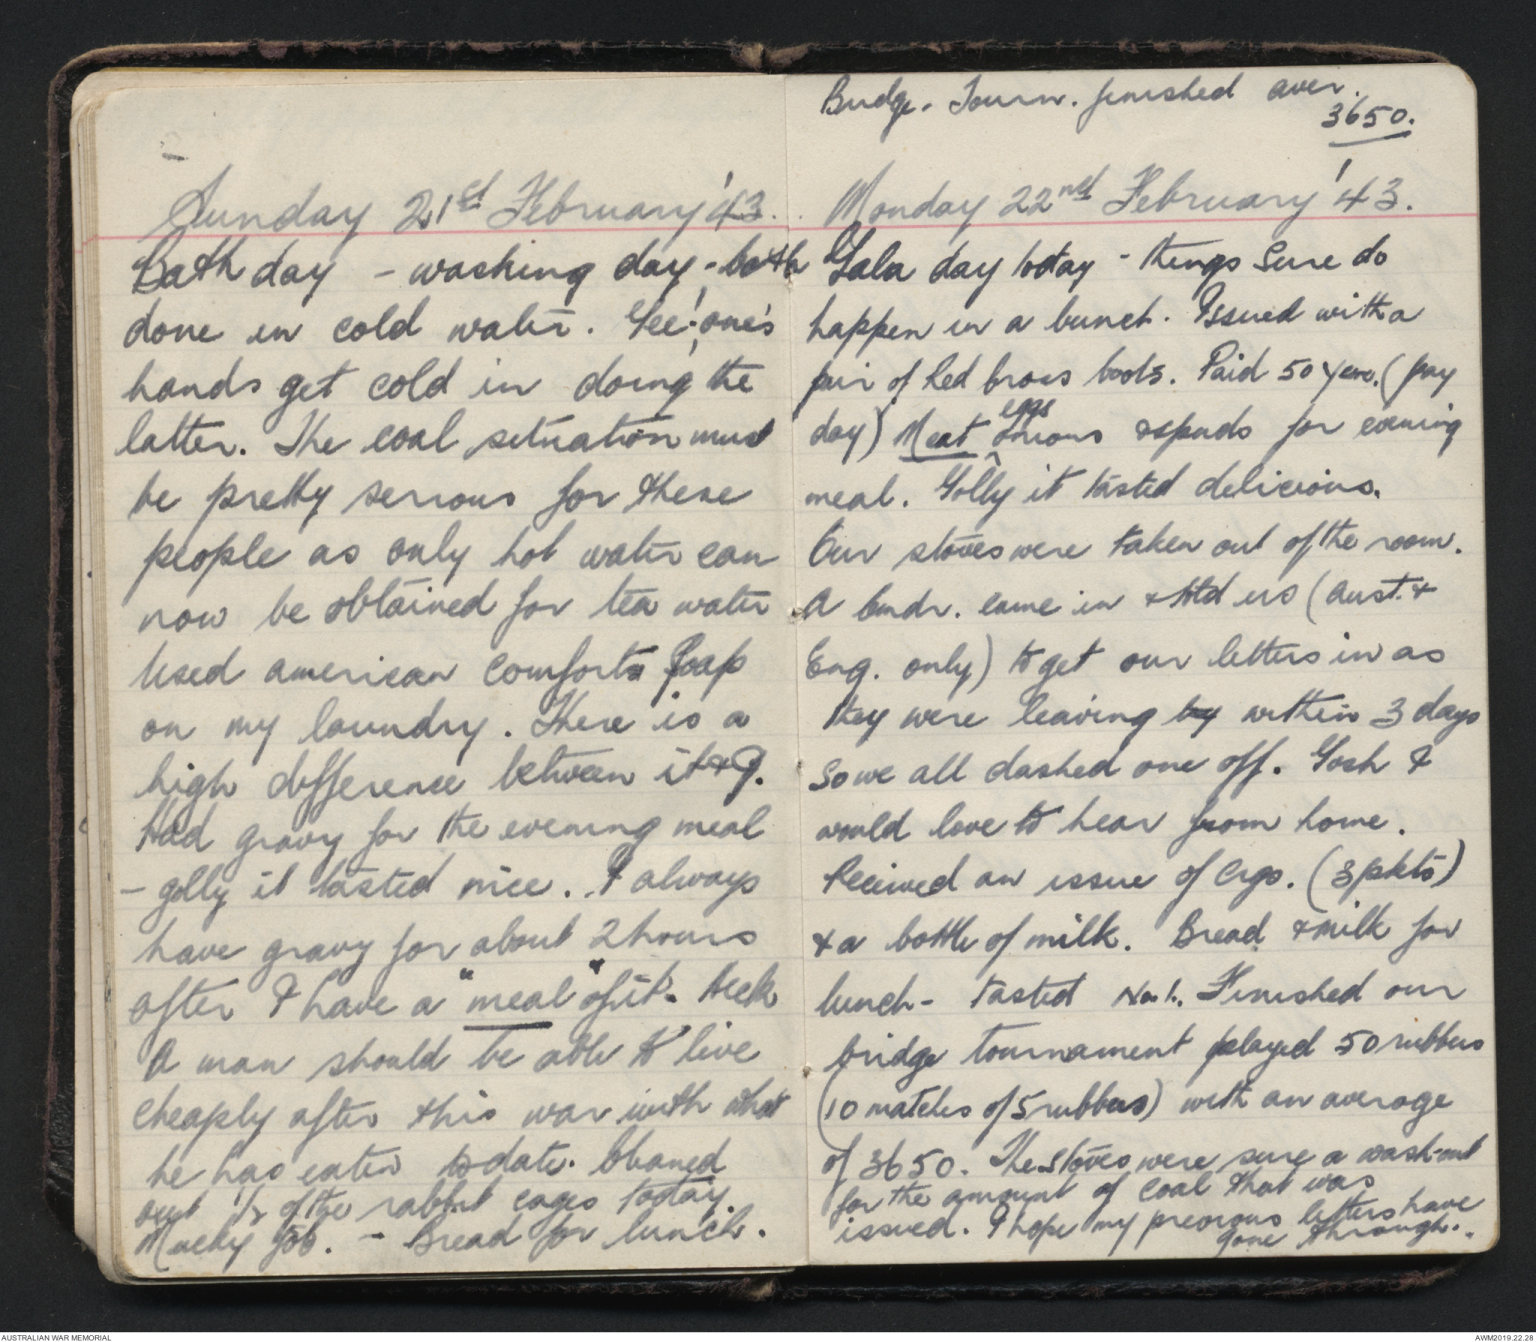 Sunday 21st February '43.
Bath day - washing day - both
done in cold water. Gee! one's
hands get cold in doing the
latter. The coal situation must
be pretty serious for these
people as only hot water can
now be obtained for tea water
Used american comforts soap
on my laundry. There is a
high difference between it & J.
Had gravy for the evening meal
- golly it tasted nice. I always
have gravy for about 2 hours
after I have a "meal" of it. Heck
A man should be able to live
cheaply after this war with what
he has eaten to date. Cleaned
out ½ of the rabbit cages today.
Mucky job. - Bread for lunch.
Bridge. Tourn. finished aver.
3650.
Monday 22nd February '43.
Gala day today - things sure do
happen in a bunch. Issued with a
pair of Red Cross boots. Paid 50 yen. (pay
eggs
day) Meat onions & spuds for evening
meal. Golly it tasted delicious.
Our stoves were taken out of the room.
A bmdr. came in & told us (Aust. &
Eng. only) to get our letters in as
they were leaving by within 3 days
so we all dashed one off. Gosh I
would love to hear from home.
Received an issue of cigs. (3 pkts)
& a bottle of milk. Bread & milk for
lunch - tasted No. 1. Finished our
bridge tournament played 50 rubbers
(10 matches of 5 rubbers) with an average
of 3650. The stoves were sure a wash-out
for the amount of coal that was
issued. I hope my previous letters have
gone through.
AUSTRALIAN WAR MEMORIAL
AWM2019.22.28